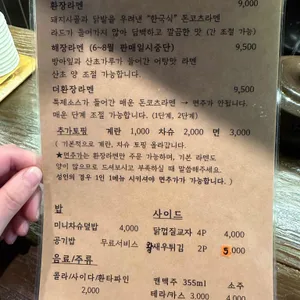 환장라멘 9,000
돼지사골과 닭발을 우려낸 "한국식" 돈코츠라멘
라드가 들어가지 않아 담백하고 깔끔한 맛 (간 조절 가능)
해장라멘 (6~8월 판매일시중단) 9,500
방아잎과 산초가루가 들어간 어탕맛 라멘
산초 양 조절 가능합니다.
더환장라멘 9,500
특제소스가 들어간 매운 돈코츠라멘 → 면추가 안됩니다.
매운 단계 조절 가능합니다. (1단계, 2단계)
추가토핑 계란 1,000 차슈 2,000 면 3,000
( 기본적으로 계란, 차슈 토핑 올라갑니다.
★면추가는 환장라멘만 주문 가능하며, 기본 라멘도
양이 많으므로 드셔보시고 부족하실 때 말씀해주세요.
성인의 경우 1인 1메뉴 시키셔야 면추가가 가능합니다. )
밥 사이드
미니차슈덮밥 4,000 닭껍질교자 4P 4,000
공기밥 무료서비스 왕새우튀김 2P 5,000
음료/주류
콜라/사이다/환타파인 2,000
캔맥주 355ml 소주
테라/카스 4,000